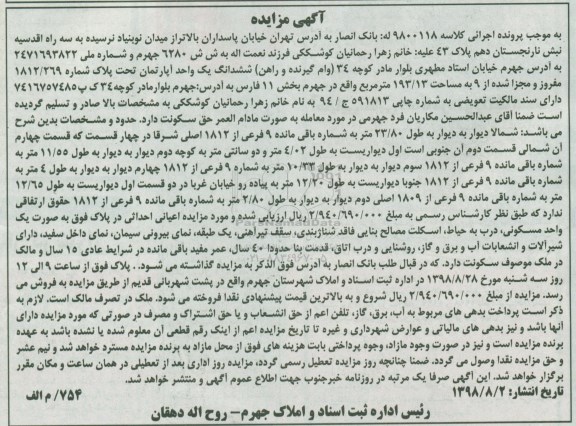 آگهی مزایده
به موجب پرونده اجرائی کلاسه ۹۸۰۰۱۱۸ له: بانک انصار به آدرس تهران خیابان پاسداران بالاتراز میدان نوبنیاد نرسیده به سه راه اقدسیه
نبش نارنجستان دهم پلاک ۴۳ علیه: خانم زهرا رحمانیان کوشککی فرزند نعمت اله به ش ش ۶۲۸۰ جهرم و شماره ملی ۲۴۷۱۶۹۳۸۲۲
به آدرس جهرم خیابان استاد مطهری بلوار مادر کوچه ۳۴ (وام گیرنده و راهن) ششدانگ یک واحد آپارتمان تحت پلاک شماره ۱۸۱۲/۲۶۹
مفروز و مجزا شده از ۹ به مساحت ۱۹۳/۱۳ مترمربع واقع در جهرم بخش ۱۱ فارس به آدرس:جهرم بلوارمادر کوچه۳۴ ک پ۷۴۱۶۷۵۷۴۸۵
دارای سند مالکیت تعویضی به شماره چاپی ۵۹۱۸۱۳ ج / ۹۴ به نام خانم زهرا رحمانیان کوشککی به مشخصات بالا صادر و تسلیم گردیده
است ضمنا آقای عبدالحسین مکاریان فرد جهرمی در مورد معامله به صورت مادام العمر حق سکونت دارد. حدود و مشخصات بدین شرح
می باشد: شمالا دیوار به دیوار به طول ۲۳/۸۰ متر به شماره باقی مانده ۹ فرعی از ۱۸۱۲ اصلی شرقا در چهار قسمت که قسمت چهارم
آن شمالی قسمت دوم آن جنوبی است اول دیواریست به طول ۴/۰۲ متر و دو سانتی متر به کوچه دوم دیوار به دیوار به طول ۱۱/۵۵ متر به
شماره باقی مانده ۹ فرعی از ۱۸۱۲ سوم دیوار به دیوار به طول ۱۰/۳۳ متر به شماره ۹ فرعی از ۱۸۱۲ چهارم دیوار به دیوار به طول ۴ متر به
شماره باقی مانده ۹ فرعی از ۱۸۱۲ جنوبا دیواریست به طول ۱۲/۲۰ متر به پیاده رو خیابان غربا در دو قسمت اول دیواریست به طول ۱۲/۶۵
متر به شماره باقی مانده ۹ فرعی از ۱۸۰۹ اصلی دوم دیوار به دیوار به طول ۲/۸۰ متر به شماره باقی مانده ۹ فرعی از ۱۸۱۲ حقوق ارتفاقی
ندارد که طبق نظر کارشناس رسمی به مبلغ ۲/۹۴۰/۶۹۰/۰۰۰ ریال ارزیابی شده و مورد مزایده اعیانی احداثی در پلاک فوق به صورت یک
واحد مسکونی، درب به حیاط، اسکلت مصالح بنایی فاقد شناژبندی، سقف تیرآهنی، یک طبقه، نمای بیرونی سیمان، نمای داخل سفید، دارای
شیرآلات و انشعابات آب و برق و گاز، روشنایی و درب اتاق، قدمت بنا حدودا ۴۰ سال، عمر مفید باقی مانده در شرایط عادی ۱۵ سال و مالک
در ملک موصوف سکونت دارد. که در قبال طلب بانک انصار به آدرس فوق الذکر به مزایده گذاشته می شود. . پلاک فوق از ساعت ۹ الی ۱۲
روز سه شنبه مورخ ۱۳۹۸/۸/۲۸ در اداره ثبت اسناد و املاک شهرستان جهرم واقع در پشت شهربانی قدیم از طریق مزایده به فروش می
رسد. مزایده از مبلغ ۲/۹۴۰/۶۹۰/۰۰۰ ریال شروع و به بالاترین قیمت پیشنهادی نقدا فروخته می شود. ملک در تصرف مالک است. لازم به
ذکر است پرداخت بدهی های مربوط به آب، برق، گاز، تلفن اعم از حق انشعاب و یا حق اشتراک و مصرف در صورتی که مورد مزایده دارای
آنها باشد و نیز بدهی های مالیاتی و عوارض شهرداری و غیره تا تاریخ مزایده اعم از اینکه رقم قطعی آن معلوم شده یا نشده باشد به عهده
برنده مزایده است و نیز در صورت وجود مازاد، وجوه پرداختی بابت هزینه های فوق از محل مازاد به برنده مزایده مسترد خواهد شد و نیم عشر
و حق مزایده نقدا وصول می گردد. ضمنا چنانچه روز مزایده تعطیل رسمی گردد، مزایده روز اداری بعد از تعطیلی در همان ساعت و مکان مقرر
برگزار خواهد شد. این آگهی صرفا یک مرتبه در روزنامه خبرجنوب جهت اطلاع عموم آگهی و منتشر خواهد شد.
تاریخ انتشار: ۱۳۹۸/۸/۲
۷۵۴/ م الف
رئیس اداره ثبت اسناد و املاک جهرم– روح اله دهقان